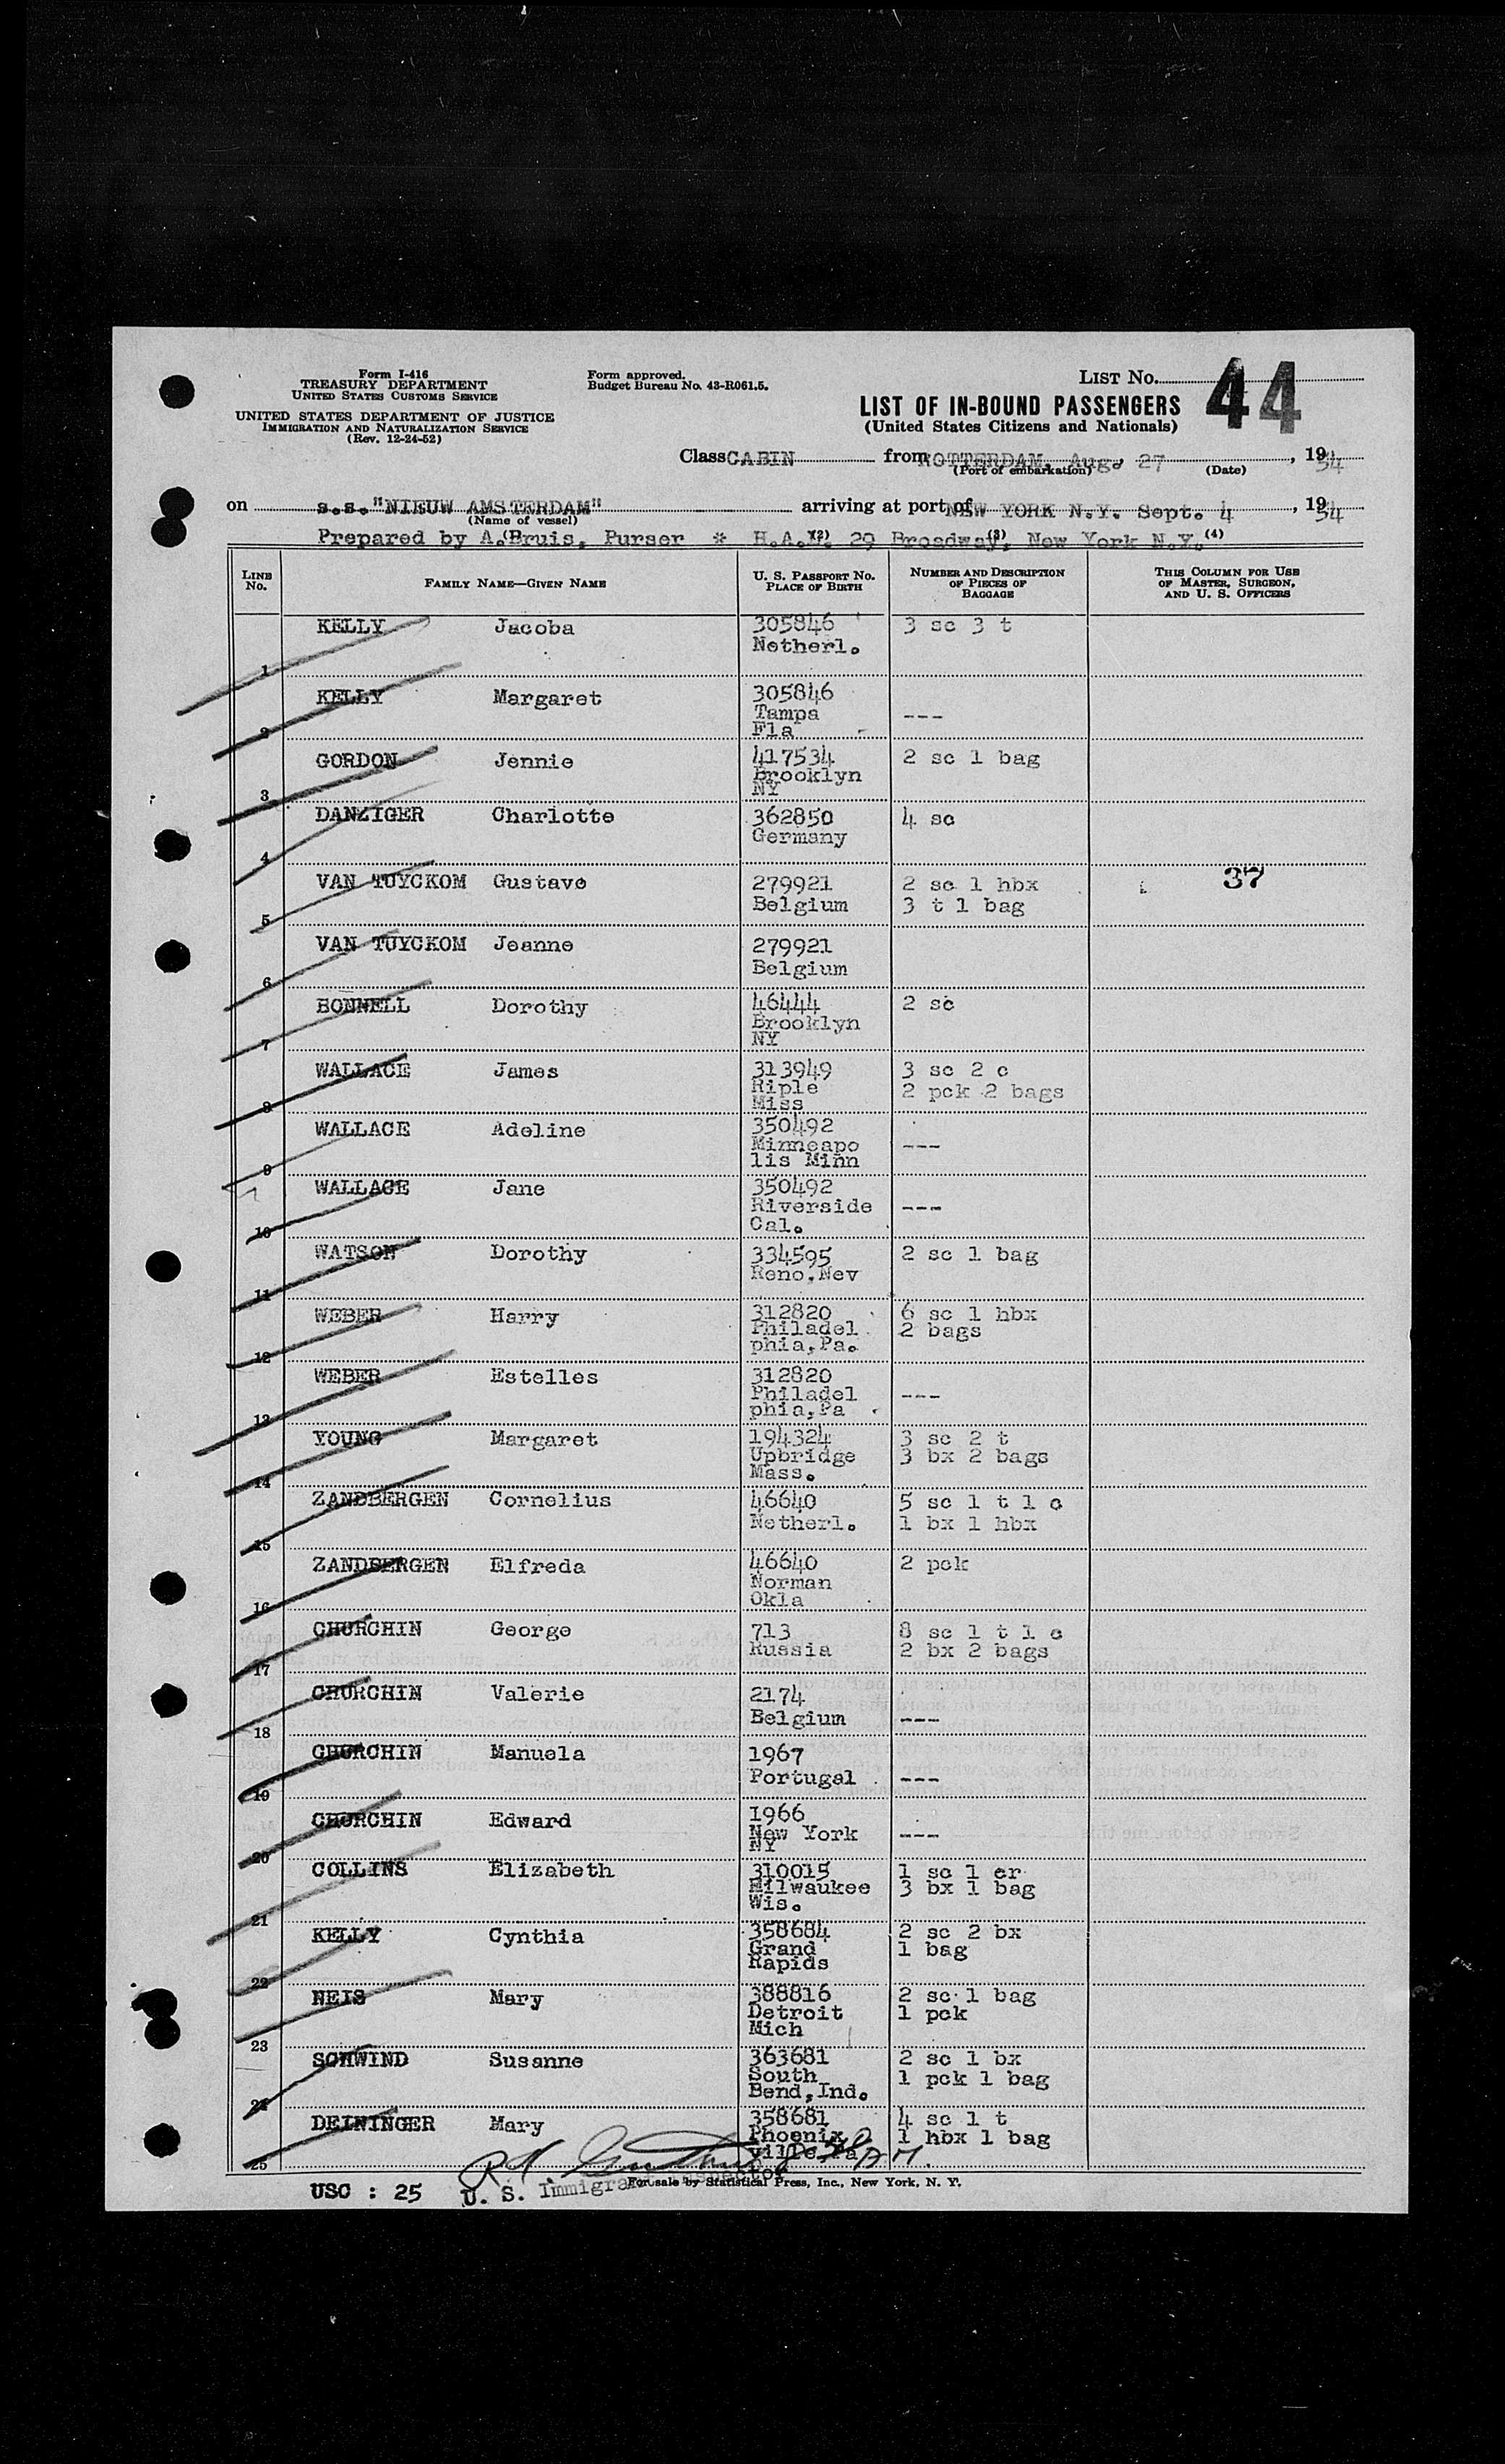 Form I-416
TREASURY DEPARTMENT
UNITED STATES CUSTOMS SERVICE
UNITED STATES DEPARTMENT OF JUSTICE
IMMIGRATION AND NATURALIZATION SERVICE
(Rev. 12-24-52)
Form approved.
Budget Bureau No. 43-R061.5.
LIST No. 44
LIST OF IN-BOUND PASSENGERS
(United States Citizens and Nationals)
Class CABIN from ROTTERDAM, Aug. 27, 1954
(Port of embarkation) (Date)
on s.s."NIEUW AMSTERDAM" arriving at port of NEW YORK N.Y. Sept. 4, 1954
(Name of vessel)
Prepared by A. Bruis, Purser * H.A. 29 Broadway, New York N.Y.
(2) (3) (4)
LINE No. FAMILY NAME—GIVEN NAME U. S. PASSPORT No. PLACE OF BIRTH NUMBER AND DESCRIPTION OF PIECES OF BAGGAGE THIS COLUMN FOR USE OF MASTER, SURGEON, AND U. S. OFFICERS
1 KELLY Jacoba 305846 3 sc 3 t
Netherl.
2 KELLY Margaret 305846
Tampa ---
Fla
3 GORDON Jennie 417534 2 sc 1 bag
Brooklyn
NY
4 DANZIGER Charlotte 362850 4 sc
Germany
5 VAN TUYCKOM Gustave 279921 2 sc 1 hbx 37
Belgium 3 t 1 bag
6 VAN TUYCKOM Jeanne 279921
Belgium
7 BONNELL Dorothy 46444 2 sc
Brooklyn
NY
8 WALLACE James 313949 3 sc 2 c
Riple 2 pck 2 bags
Miss
9 WALLACE Adeline 350492
Minneapo ---
lis Minn
10 WALLACE Jane 350492
Riverside ---
Cal.
11 WATSON Dorothy 334595 2 sc 1 bag
Reno,Nev
12 WEBER Harry 312820 6 sc 1 hbx
Philadel 2 bags
phia,Pa.
13 WEBER Estelles 312820
Philadel ---
phia,Pa
14 YOUNG Margaret 194324 3 sc 2 t
Upbridge 3 bx 2 bags
Mass.
15 ZANDBERGEN Cornelius 46640 5 sc 1 t 1 c
Netherl. 1 bx 1 hbx
16 ZANDBERGEN Elfreda 46640 2 pck
Norman
Okla
17 CHURCHIN George 713 8 sc 1 t 1 c
Russia 2 bx 2 bags
18 CHURCHIN Valerie 2174
Belgium ---
19 CHURCHIN Manuela 1967
Portugal ---
20 CHURCHIN Edward 1966
New York ---
NY
21 COLLINS Elizabeth 310015 1 sc 1 cr
Milwaukee 3 bx 1 bag
Wis.
22 KELLY Cynthia 358684 2 sc 2 bx
Grand 1 bag
Rapids
23 NEIS Mary 388816 2 sc 1 bag
Detroit 1 pck
Mich
24 SCHWIND Susanne 363681 2 sc 1 bx
South 1 pck 1 bag
Bend,Ind.
25 DEININGER Mary 358681 4 sc 1 t
Phoenix 1 hbx 1 bag
ville Pa
USC : 25 U. S. Immigrant Inspector
For sale by Statistical Press, Inc., New York, N. Y.